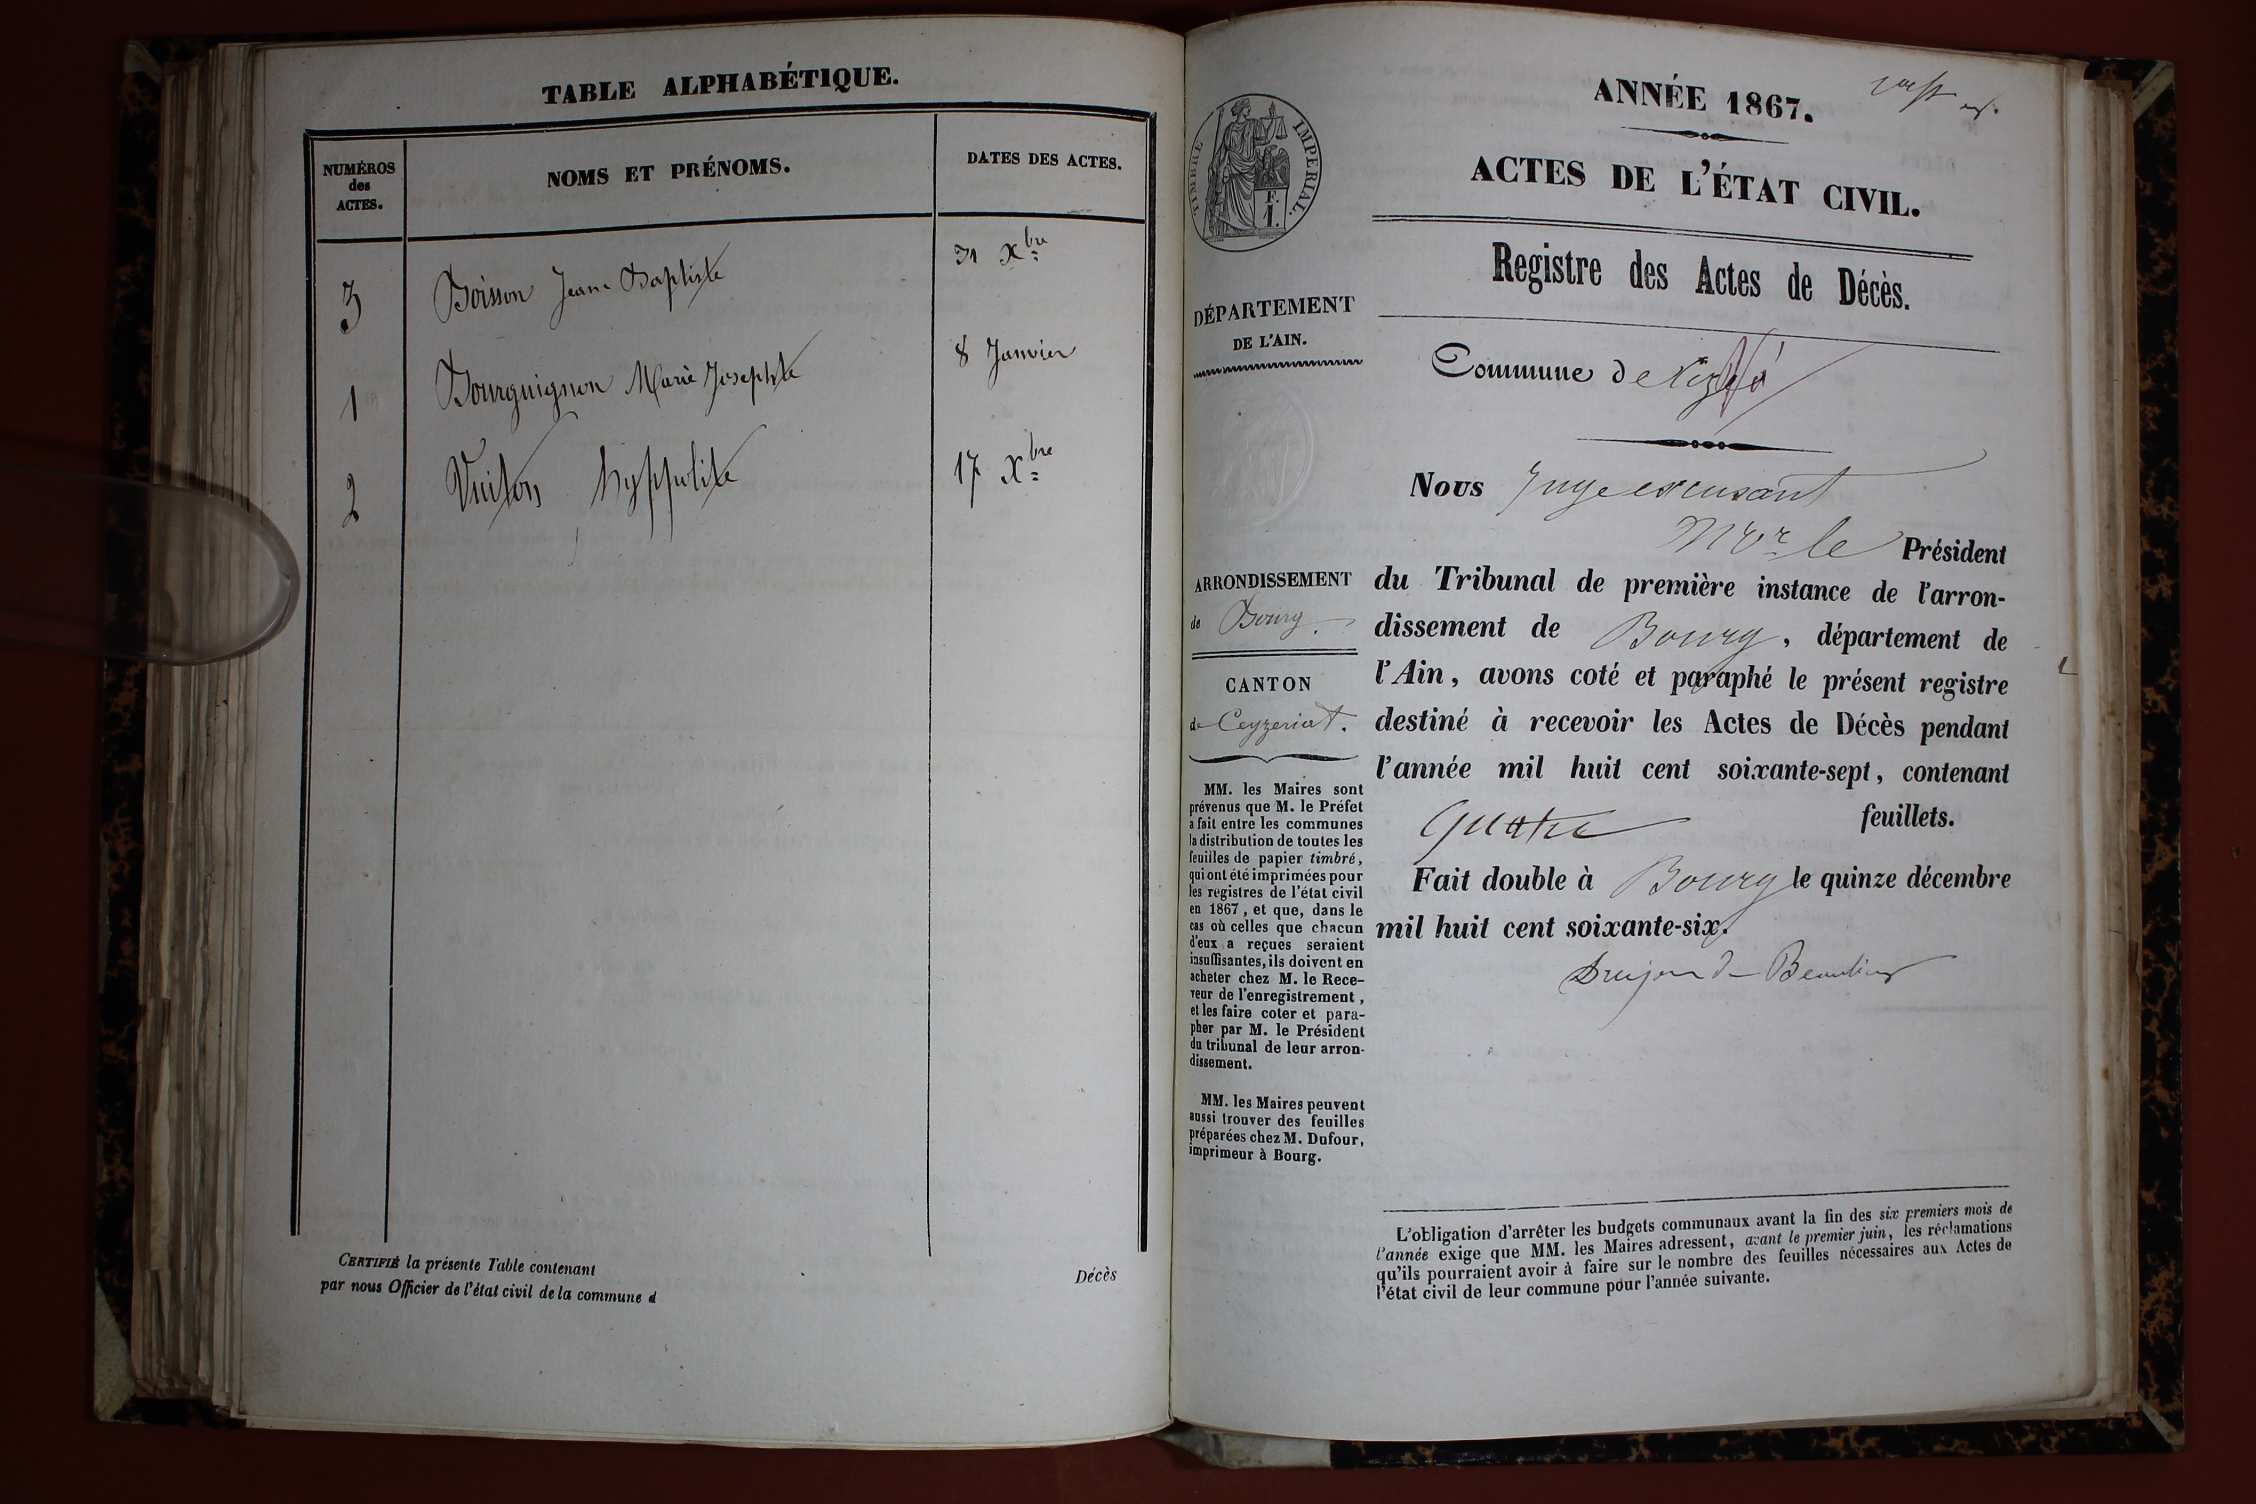 TABLE ALPHABÉTIQUE.
NUMÉROS
des
ACTES.
NOMS ET PRÉNOMS.
DATES DES ACTES.
3 Boisson Jean Baptiste 31 Xbre
1 Bourguignon Marie Josephte 8 Janvier
2 Vuiton hyppolite 17 Xbre
CERTIFIÉ la présente Table contenant Décès
par nous Officier de l'état civil de la commune d
TIMBRE IMPERIAL.
F.
1.
DÉPARTEMENT
DE L'AIN.
ARRONDISSEMENT
de Bourg.
CANTON
de Ceyzeriat.
MM. les Maires sont
prévenus que M. le Préfet
a fait entre les communes
la distribution de toutes les
feuilles de papier timbré,
qui ont été imprimées pour
les registres de l'état civil
en 1867, et que, dans le
cas où celles que chacun
d'eux a reçues seraient
insuffisantes, ils doivent en
acheter chez M. le Rece-
veur de l'enregistrement,
et les faire coter et para-
pher par M. le Président
du tribunal de leur arron-
dissement.
MM. les Maires peuvent
aussi trouver des feuilles
préparées chez M. Dufour,
imprimeur à Bourg.
ANNÉE 1867.
ACTES DE L'ÉTAT CIVIL.
Registre des Actes de Décès.
Commune de
Nous Juge excusant
Mr le Président
du Tribunal de première instance de l'arron-
dissement de Bourg, département de
l'Ain, avons coté et paraphé le présent registre
destiné à recevoir les Actes de Décès pendant
l'année mil huit cent soixante-sept, contenant
Quatre feuillets.
Fait double à Bourg le quinze décembre
mil huit cent soixante-six.
Drujon de Beaulieu
L'obligation d'arrêter les budgets communaux avant la fin des six premiers mois de
l'année exige que MM. les Maires adressent, avant le premier juin, les réclamations
qu'ils pourraient avoir à faire sur le nombre des feuilles nécessaires aux Actes de
l'état civil de leur commune pour l'année suivante.